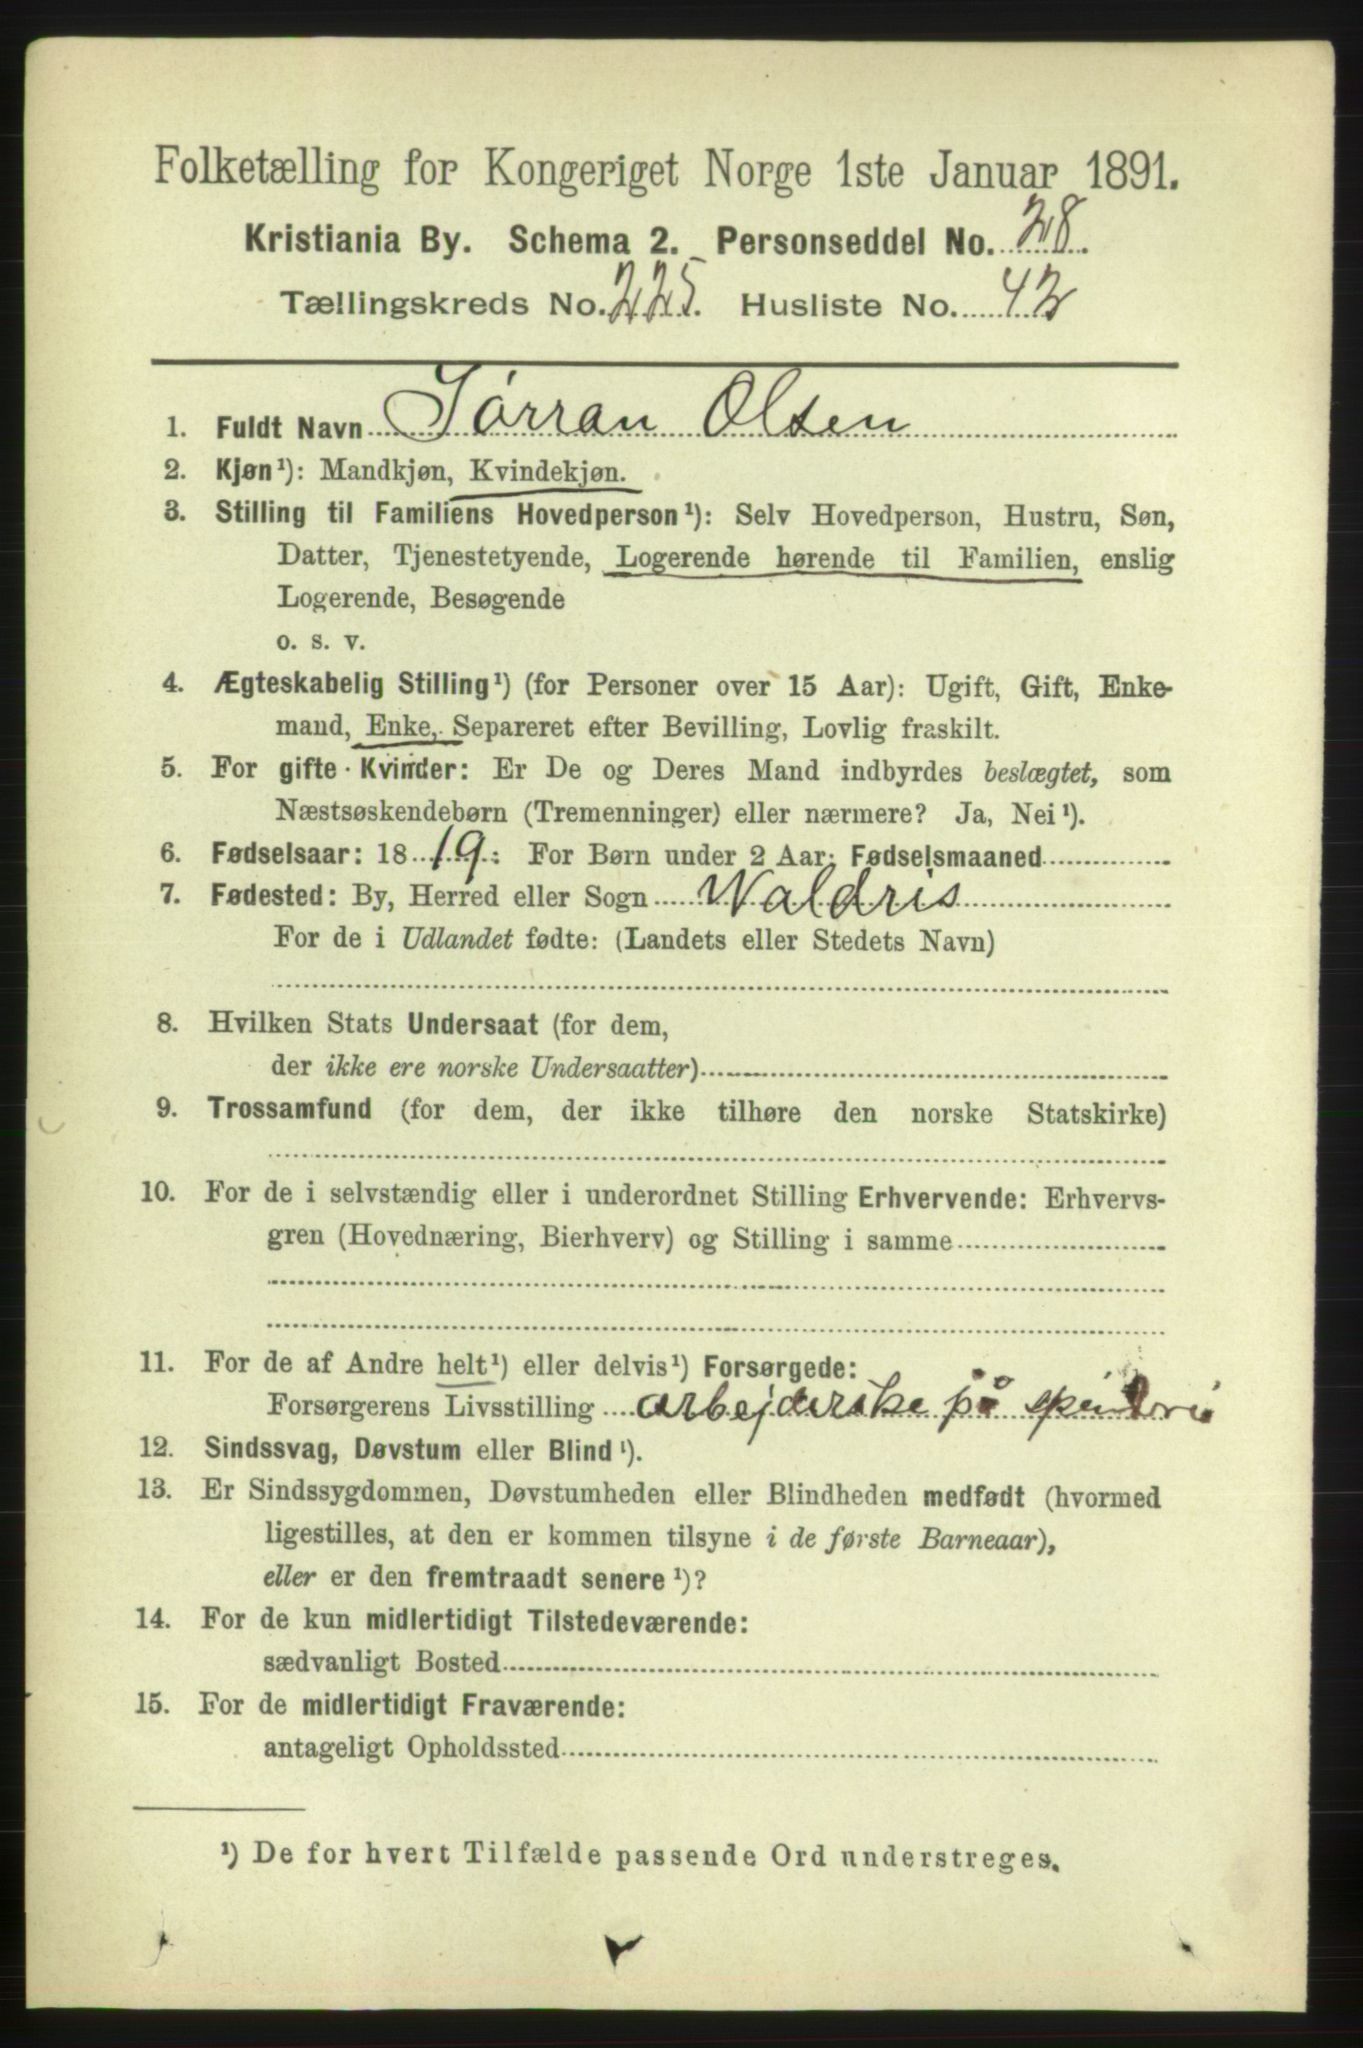 Folketælling for Kongeriget Norge 1ste Januar 1891.
Kristiania By. Schema 2. Personseddel No. 28.
Tællingskreds No. 225. Husliste No. 42
1. Fuldt Navn Sørran Olsen
2. Kjøn¹): Mandkjøn, Kvindekjøn.
3. Stilling til Familiens Hovedperson¹): Selv Hovedperson, Hustru, Søn,
Datter, Tjenestetyende, Logerende hørende til Familien, enslig
Logerende, Besøgende
o. s. v.
4. Ægteskabelig Stilling¹) (for Personer over 15 Aar): Ugift, Gift, Enke-
mand, Enke, Separeret efter Bevilling, Lovlig fraskilt.
5. For gifte Kvinder: Er De og Deres Mand indbyrdes beslægtet, som
Næstsøskendebørn (Tremenninger) eller nærmere? Ja, Nei¹).
6. Fødselsaar: 1819. For Børn under 2 Aar: Fødselsmaaned
7. Fødested: By, Herred eller Sogn Waldris
For de i Udlandet fødte: (Landets eller Stedets Navn)
8. Hvilken Stats Undersaat (for dem,
der ikke ere norske Undersaatter)
9. Trossamfund (for dem, der ikke tilhøre den norske Statskirke)
10. For de i selvstændig eller i underordnet Stilling Erhvervende: Erhvervs-
gren (Hovednæring, Bierhverv) og Stilling i samme
11. For de af Andre helt¹) eller delvis¹) Forsørgede:
Forsørgerens Livsstilling arbejderske på spinderi
12. Sindssvag, Døvstum eller Blind¹).
13. Er Sindssygdommen, Døvstumheden eller Blindheden medfødt (hvormed
ligestilles, at den er kommen tilsyne i de første Barneaar),
eller er den fremtraadt senere¹)?
14. For de kun midlertidigt Tilstedeværende:
sædvanligt Bosted
15. For de midlertidigt Fraværende:
antageligt Opholdssted
¹) De for hvert Tilfælde passende Ord understreges.